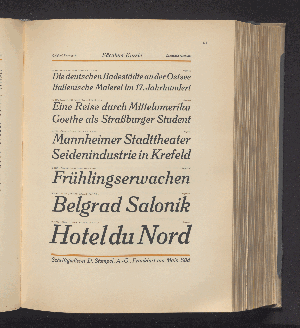 Die deutschen Badestädte an der Ostsee
Italienische Malerei im 17. Jahrhundert
Eine Reise durch Mittelamerika
Goethe als Straßburger Student
Mannheimer Stadttheater
Seidenindustrie in Krefeld
Frühlingserwachen
Belgrad Salonik
Hotel du Nord
Schriftgießerei D. Stempel, A.-G., Frankfurt am Main-Süd